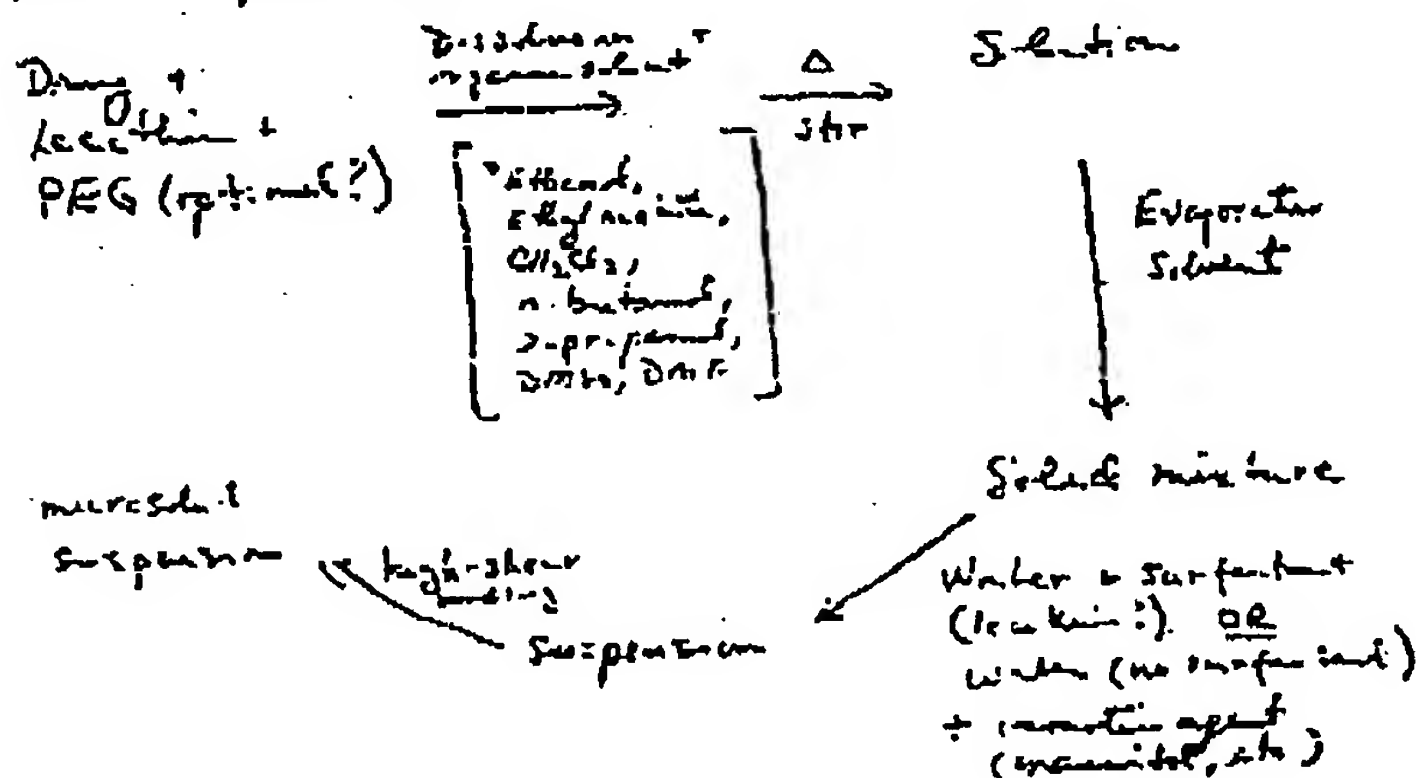 Drug +
Lecithin +
PEG (optional?)
Dissolve in
organic solvent*
Δ
stir
Solution
*Ethanol,
Ethyl
CH2Cl2,
n-butanol,
2-propanol,
DMSO, DMF
Evaporate
Solvent
Solid mixture
Water + Surfactant
(lecithin?). OR
water (no surfactant)
+ agent
(mannitol, etc)
Suspension
high-shear
mixing
Suspension